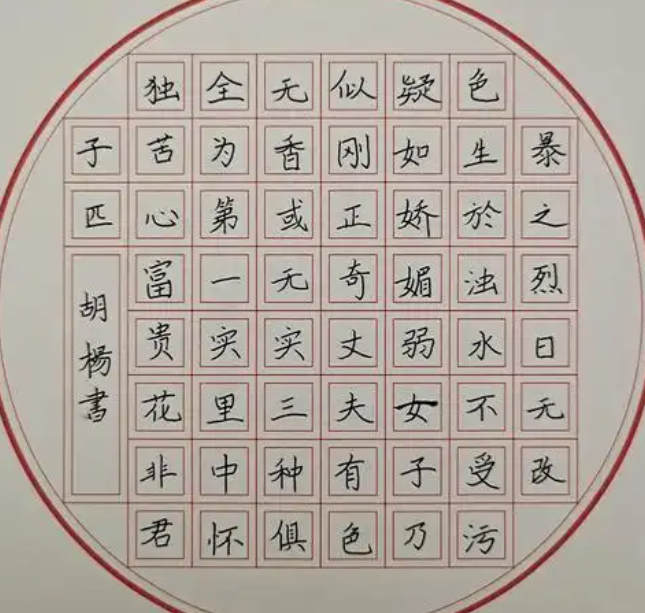 暴之烈日无改
色生於浊水不受污
疑如娇媚弱女子乃
似刚正奇丈夫有色
无香或无实三种俱
全为第一实里中怀
独苦心富贵花非君
子匹
胡杨書